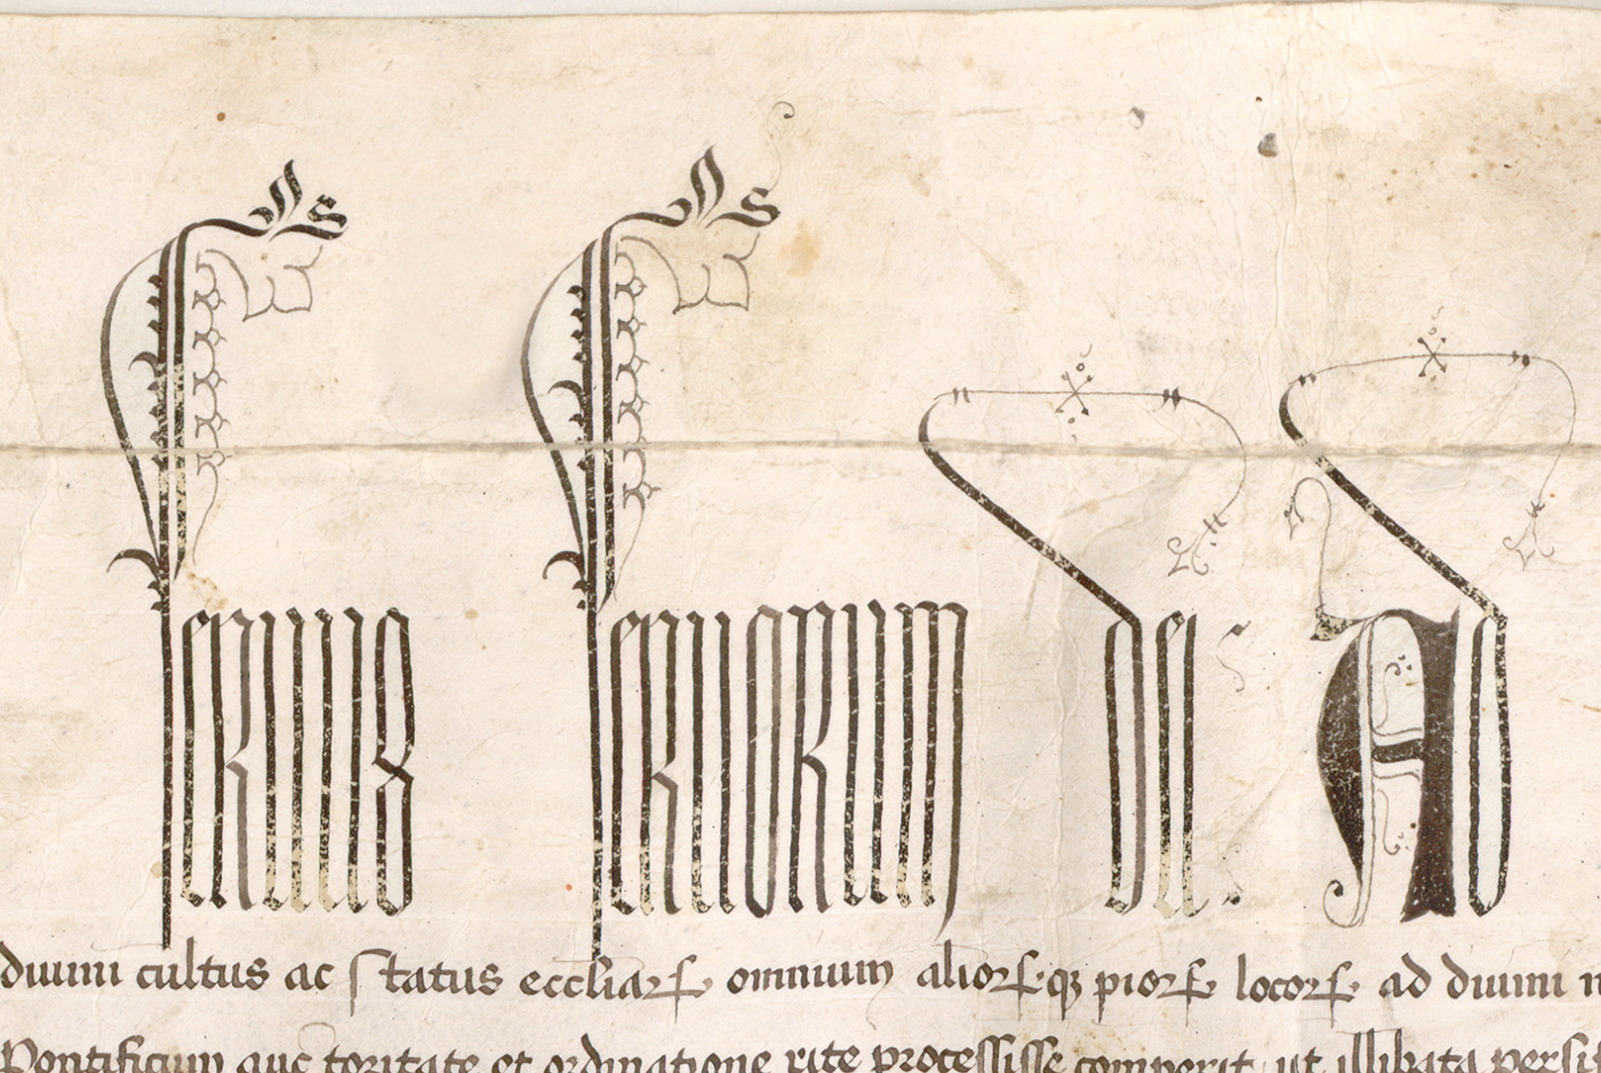 seruus seruorum dei. Ad
diuini cultus ac status eccliaꝝ omnium alioꝝqꝫ pioꝝ locoꝝ ad diuini
Pontificum auctoritate et ordinatione rite processisse comperit ut illibata